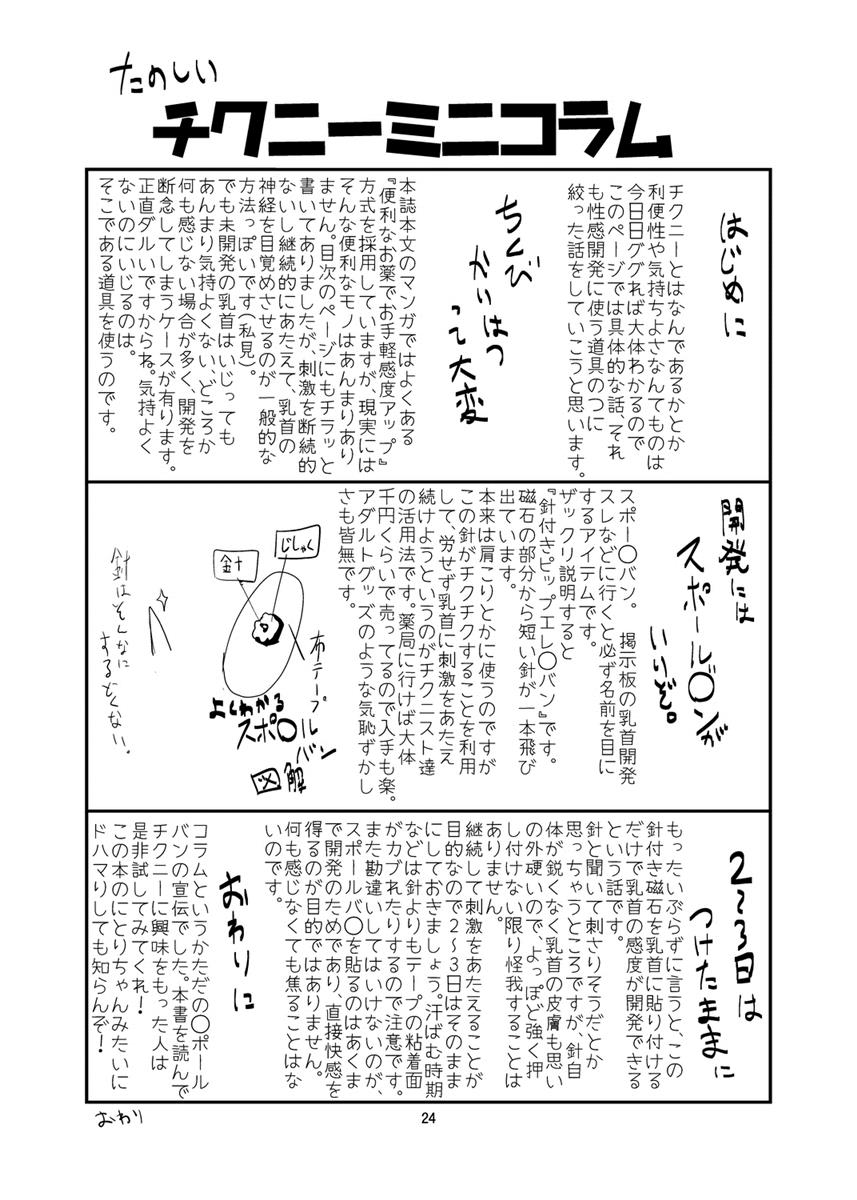 たのしい
チクニーミニコラム
はじめに
チクニーとはなんであるかとか
利便性や気持ちよさなんてものは
今日日ググれば大体わかるので
このページでは具体的な話、それ
も性感開発に使う道具のつに
絞った話をしていこうと思います。
ちくび
かいはつ
って大変
本誌本文のマンガではよくある
『便利なお薬でお手軽感度アップ』
方式を採用していますが、現実には
そんな便利なモノはあんまりあり
ません。目次のページにもチラッと
書いてありましたが、刺激を断続的
ないし継続的にあたえて、乳首の
神経を目覚めさせるのが一般的な
方法っぽいです(私見)。
でも未開発の乳首はいじっても
あんまり気持よくない、どころか
何も感じない場合が多く、開発を
断念してしまうケースが有ります。
正直ダルいですからね。気持よく
ないのにいじるのは。
そこである道具を使うのです。
開発には
スポールバ〇ンが
いいぞ。
スポー〇バン。 掲示板の乳首開発
スレなどに行くと必ず名前を目に
するアイテムです。
ザックリ説明すると
『針付きピップエレ〇バン』です。
磁石の部分から短い針が一本飛び
出ています。
本来は肩こりとかに使うのですが
この針がチクチクすることを利用
して、労せず乳首に刺激をあたえ
続けようというのがチクニスト達
の活用法です。薬局に行けば大体
千円くらいで売ってるので入手も楽。
アダルトグッズのような気恥ずかし
さも皆無です。
じしゃく
針
布テープ
よくわかる
スポ〇ル
バン
図解
針はそんなに
するどくない。
2〜3日は
つけたままに
もったいぶらずに言うと、この
針付き磁石を乳首に貼り付ける
だけで乳首の感度が開発できる
という話です。
針と聞いて刺さりそうだとか
思っちゃうところですが、針自
体が鋭くなく乳首の皮膚も思い
の外硬いので、よっぽど強く押
し付けない限り怪我することは
ありません。
継続して刺激をあたえることが
目的なので2〜3日はそのまま
にしておきましょう。汗ばむ時期
などは針よりもテープの粘着面
がカブれたりするので注意です。
また勘違いしてはいけないのが、
スポールバ〇を貼るのはあくま
で開発のためであり、直接快感を
得るのが目的ではありません。
何も感じなくても焦ることはな
いのです。
おわりに
コラムというかただの〇ポール
バンの宣伝でした。本書を読んで
チクニーに興味をもった人は
是非試してみてくれ！
この本のにとりちゃんみたいに
ドハマりしても知らんぞ！
おわり
24